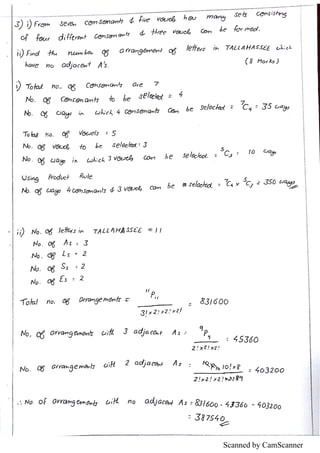 3) i) From seven consonants & five vowels how many sets consisting
of four different consonants & three vowels can be formed.
ii) Find the number of arrangement of letters in TALLAHASSEE which
have no adjacent A's. (8 Marks)
i) Total no. of Consonants are 7
No. of Consonants to be selected = 4
No. of ways in which 4 Consonants Can be selected = ⁷C₄ = 35 ways
Total no. of vowels = 5
No. of vowels to be selected = 3
No of ways in which 3 vowels can be selected = ⁵C₃ = 10 ways
Using Product Rule
No. of ways 4 consonants & 3 vowels can be selected = ⁷C₄ x ⁵C₃ = 350 ways
ii) No. of letters in TALLAHASSEE = 11
No. of As = 3
No. of Ls = 2
No. of Ss = 2
No. of Es = 2
Total no. of Arrangements = ¹¹P₁₁ / 3! x 2! x 2! x 2! = 831600
No. of arrangements with 3 adjacent As : ⁹P₉ / 2! x 2! x 2! = 45360
No. of arrangements with 2 adjacent As : 10! x 8 = 403200
∴ No of arrangements with no adjacent As = 831600 - 45360 - 403200
= 387540
Scanned by CamScanner